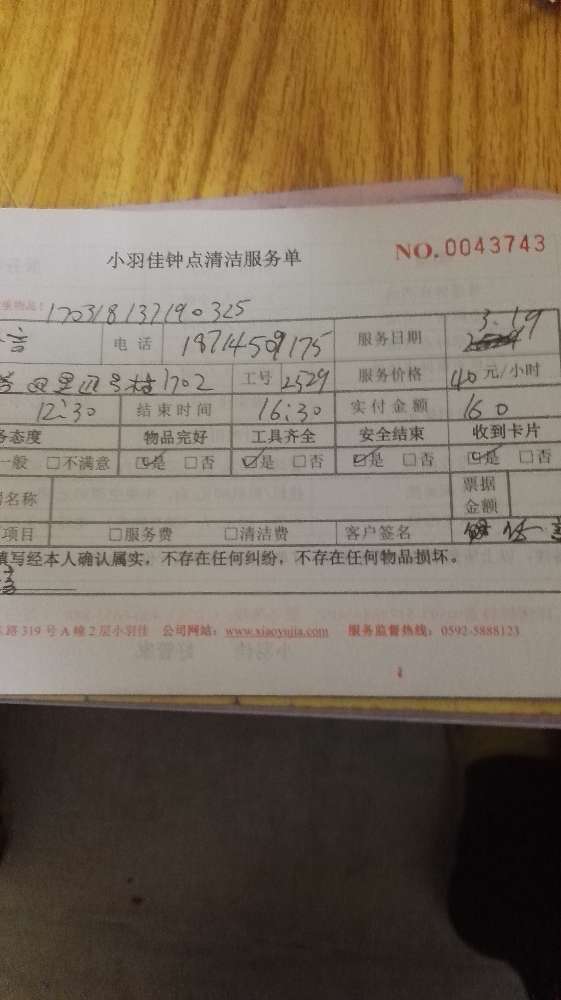 小羽佳钟点清洁服务单 NO.0043743
170318137190325
言 电话 18714509175 服务日期 3.19
四里 号楼1702 工号 2529 服务价格 40元/小时
12:30 结束时间 16:30 实付金额 160
务态度 物品完好 工具齐全 安全结束 收到卡片
一般 □不满意 ☑是 □否 ☑是 □否 ☑是 □否 ☑是 □否
名称 票据金额
项目 □服务费 □清洁费 客户签名
填写经本人确认属实，不存在任何纠纷，不存在任何物品损坏。
路319号A幢2层小羽佳 公司网站：www.xiaoyujia.com 服务监督热线：0592-5888123